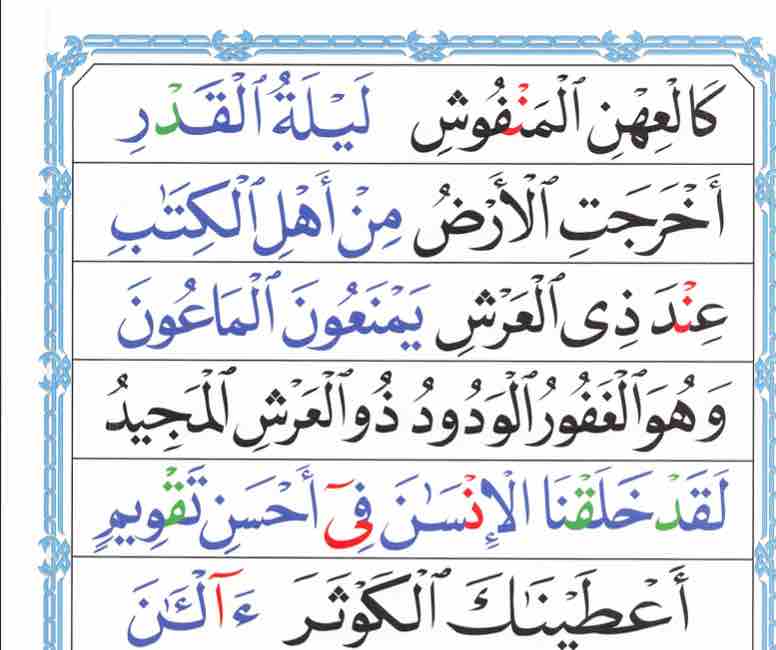 كَالْعِهْنِ ٱلْمَنْفُوشِ لَيْلَةُ ٱلْقَدْرِ
أَخْرَجَتِ ٱلْأَرْضُ مِنْ أَهْلِ ٱلْكِتَـٰبِ
عِنْدَ ذِى ٱلْعَرْشِ يَمْنَعُونَ ٱلْمَاعُونَ
وَهُوَ ٱلْغَفُورُ ٱلْوَدُودُ ذُو ٱلْعَرْشِ ٱلْمَجِيدُ
لَقَدْ خَلَقْنَا ٱلْإِنْسَـٰنَ فِىٓ أَحْسَنِ تَقْوِيمٍ
أَعْطَيْنَـٰكَ ٱلْكَوْثَرَ ءَآلْـَٔـٰنَ